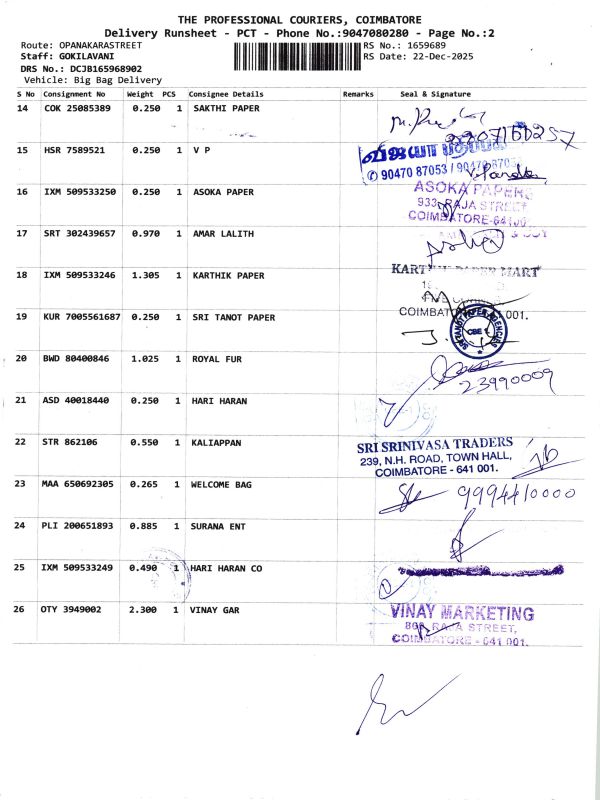 THE PROFESSIONAL COURIERS, COIMBATORE
Delivery Runsheet - PCT - Phone No.:9047080280 - Page No.:2
Route: OPANAKARASTREET
RS No.: 1659689
Staff: GOKILAVANI
RS Date: 22-Dec-2025
DRS No.: DCJB165968902
Vehicle: Big Bag Delivery
S No Consignment No Weight PCS Consignee Details Remarks Seal & Signature
14 COK 25085389 0.250 1 SAKTHI PAPER
15 HSR 7589521 0.250 1 V P
✆ 90470 87053 / 90470 87053
16 IXM 509533250 0.250 1 ASOKA PAPER
ASOKA PAPERS
933, RAJA STREET
COIMBATORE-641001
17 SRT 302439657 0.970 1 AMAR LALITH
18 IXM 509533246 1.305 1 KARTHIK PAPER
KARTHIK PAPER MART
COIMBATORE 001.
19 KUR 7005561687 0.250 1 SRI TANOT PAPER
SRI TANOT PAPER AGENCIES
CBE
20 BWD 80400846 1.025 1 ROYAL FUR
23990009
21 ASD 40018440 0.250 1 HARI HARAN
22 STR 862106 0.550 1 KALIAPPAN
SRI SRINIVASA TRADERS
239, N.H. ROAD, TOWN HALL,
COIMBATORE - 641 001.
23 MAA 650692305 0.265 1 WELCOME BAG
9994410000
24 PLI 200651893 0.885 1 SURANA ENT
25 IXM 509533249 0.490 1 HARI HARAN CO
26 OTY 3949002 2.300 1 VINAY GAR
VINAY MARKETING
RAJA STREET,
COIMBATORE - 641 001.